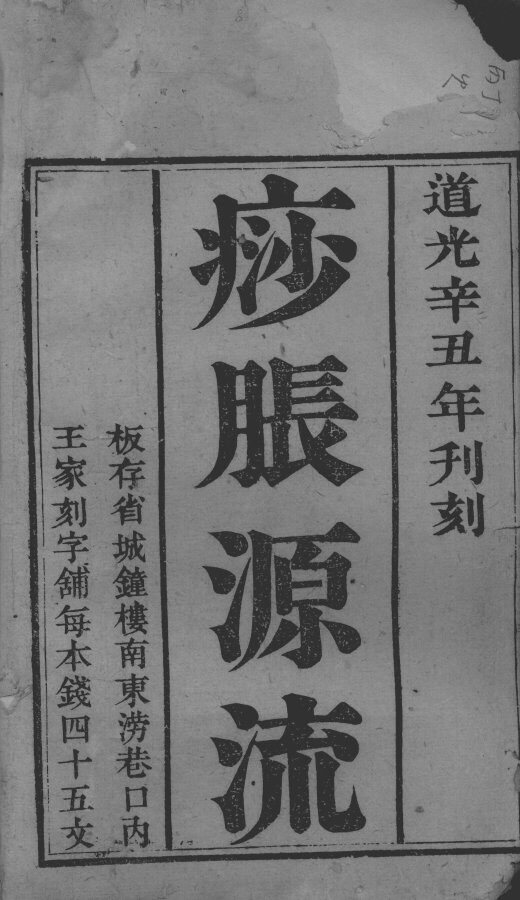 道光辛丑年刊刻
痧脹源流
板存省城鐘樓南東澇巷口內
王家刻字舖每本錢四十五文